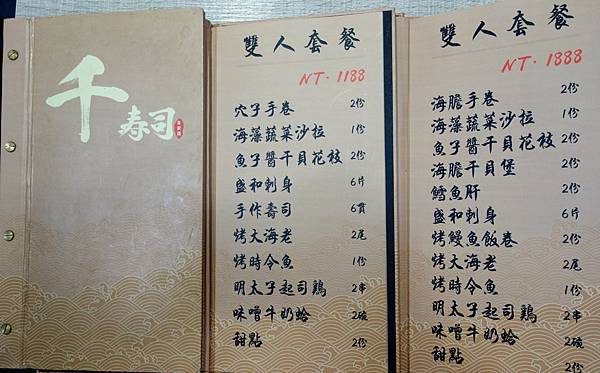 千
寿司
雙人套餐
NT. 1188
穴子手卷 2份
海藻蔬菜沙拉 1份
魚子醬干貝花枝 2份
盛和刺身 6片
手作壽司 6貫
烤大海老 2尾
烤時令魚 1份
明太子起司鷄 2串
味噌牛奶蛤 2碗
甜點 2份
雙人套餐
NT. 1888
海膽手卷 2份
海藻蔬菜沙拉 1份
魚子醬干貝花枝 2份
海膽干貝堡 2份
鱈魚肝 2份
盛和刺身 6片
烤鰻魚飯卷 2份
烤大海老 2尾
烤時令魚 1份
明太子起司鷄 2串
味噌牛奶蛤 2碗
甜點 2份